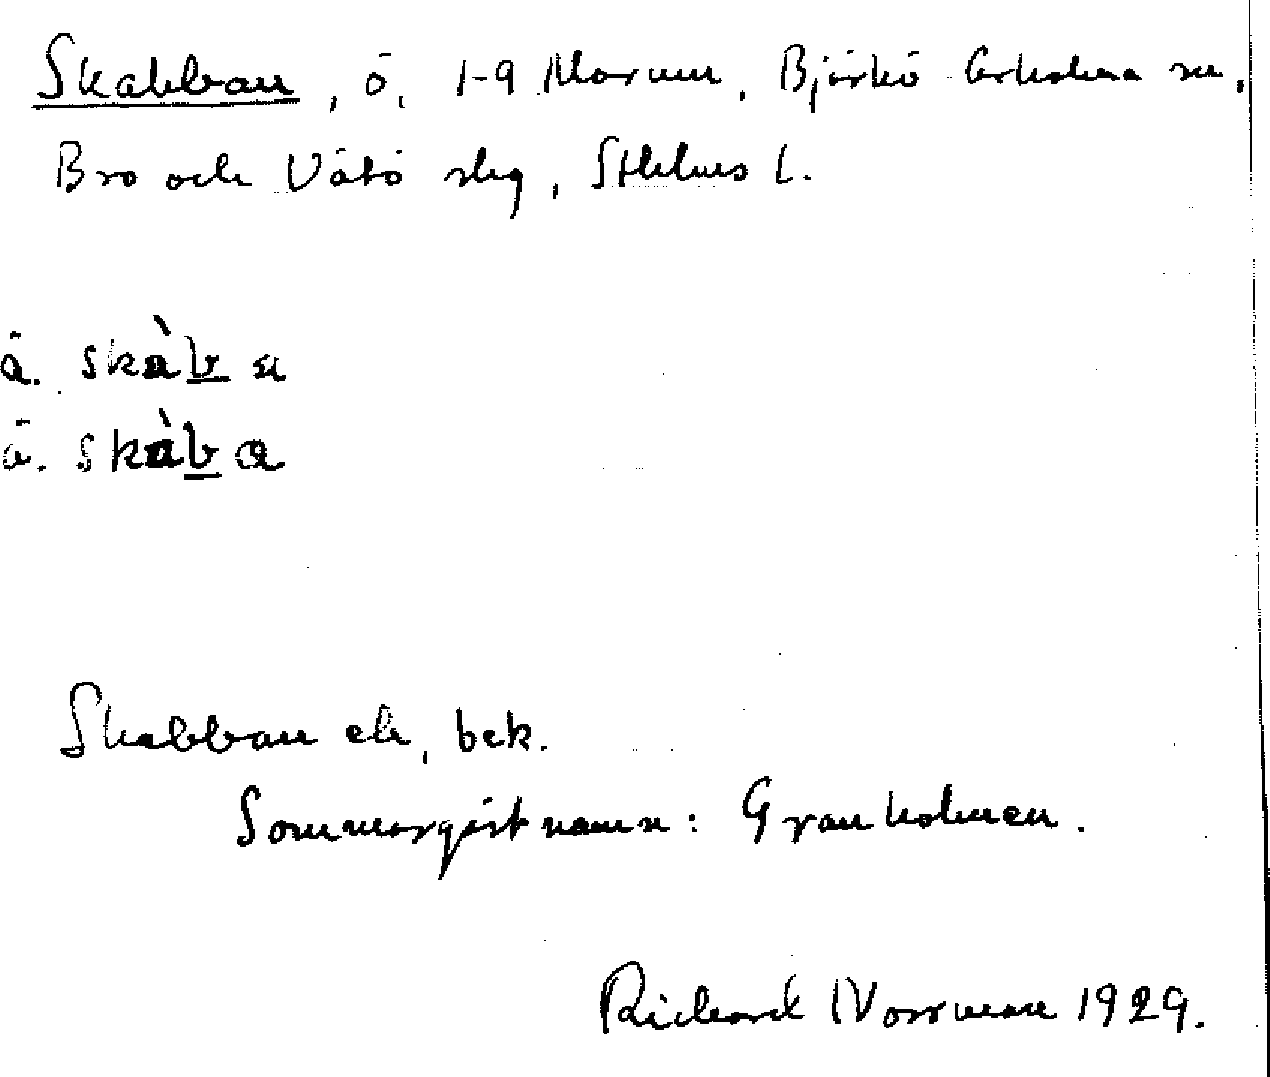 Skabban, ö, 1-9 Marum, Björkö-Arholma sn,
Bro och Vätö slg, Sthlms l.
ä. skàb̲a
ä. skàb̲a
Skabban ek, bek.
Sommargästnamn: Granholmen.
Richard Norrman 1929.